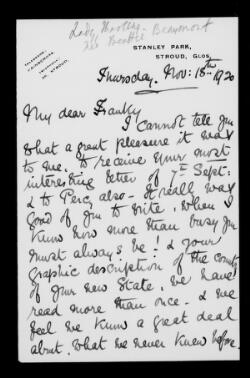 Lady Marling
née Beatrice Beaumont
STANLEY PARK,
STROUD, GLOS.
TELEPHONE:
TELEGRAMS:
STROUD.
Thursday. Nov: 18th 1920
My dear Franky
I cannot tell you
what a great pleasure it was
to me, to receive your most
interesting letter of 7th Sept.
& to Percy also. It really was
good of you to write, when I
know how more than busy you
must always be! & your
graphic description of the country
of your new State, we have
read more than once. & we
feel we know a great deal
about, what we never knew before.